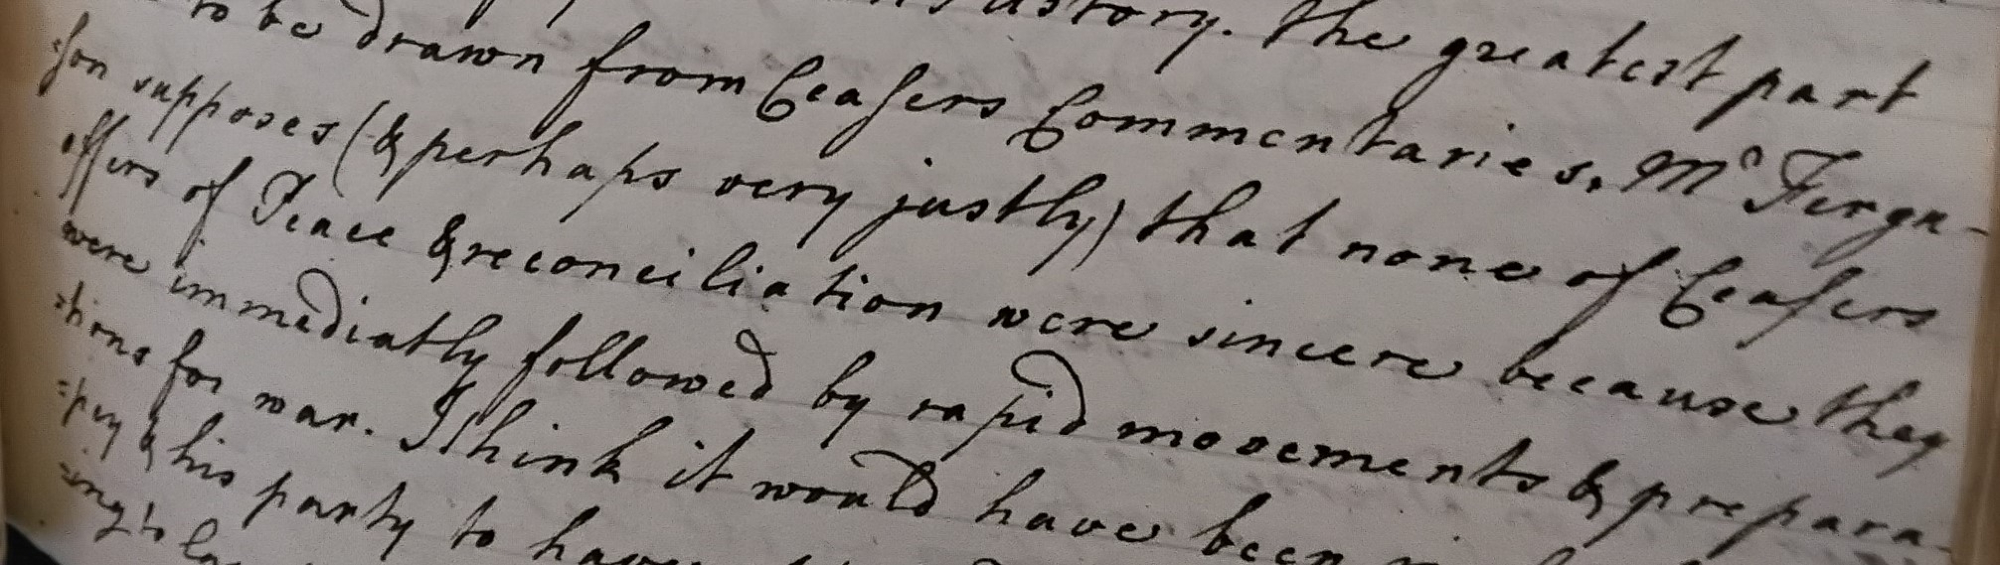 history. The greatest part
to be drawn from Ceasers Commentaries, Mr Fergu-
=son supposes (& perhaps very justly) that none of Ceasers
offers of Peace & reconciliation were sincere because they
were immediatly followed by rapid movements & prepara-
=tions for war. I think it would have been
=pey & his party to have
=ing to